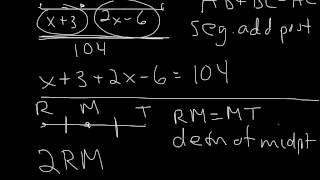 AB+BC=AC
x+3 2x-6
seg. add post
104
x+3+2x-6=104
R M T
RM=MT
defn of midpt
2RM